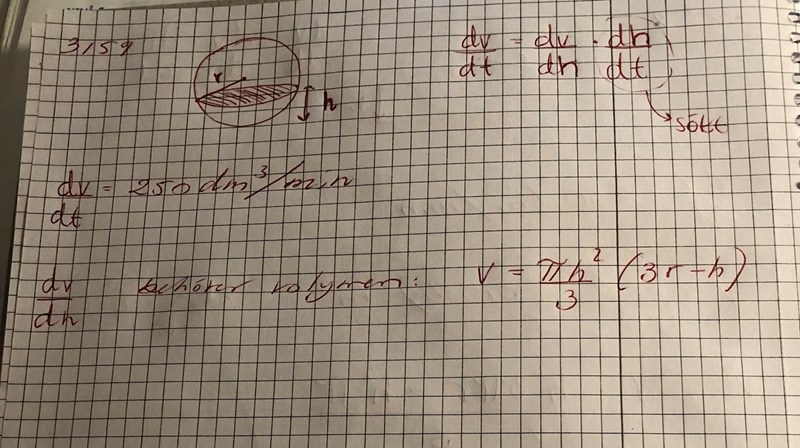 3159
r
h
dv/dt = dv/dh · dh/dt
sökt
dv/dt = 250 dm³/min
dv/dh behöver volymen: V = πh²/3 (3r-h)